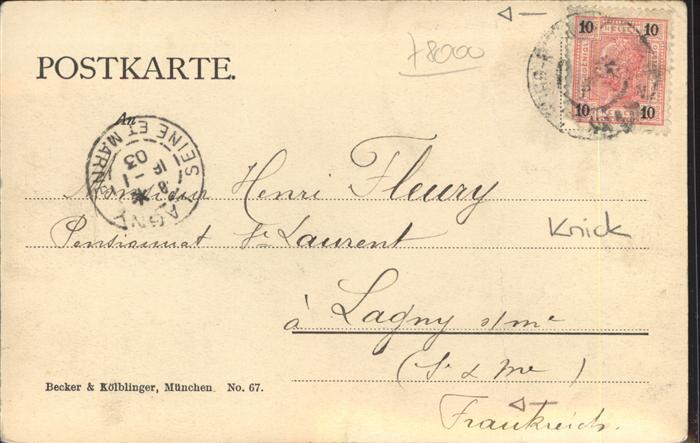 78000
10 10
HELLER
10 10
POSTKARTE.
An
LAGNY
SEINE ET MARNE
16 -1
03
Monsieur Henri Fleury
Pensionnat St Laurent
Knick
à Lagny s/me
(S. & Me)
Becker & Kölblinger, München. No. 67.
Frankreich.